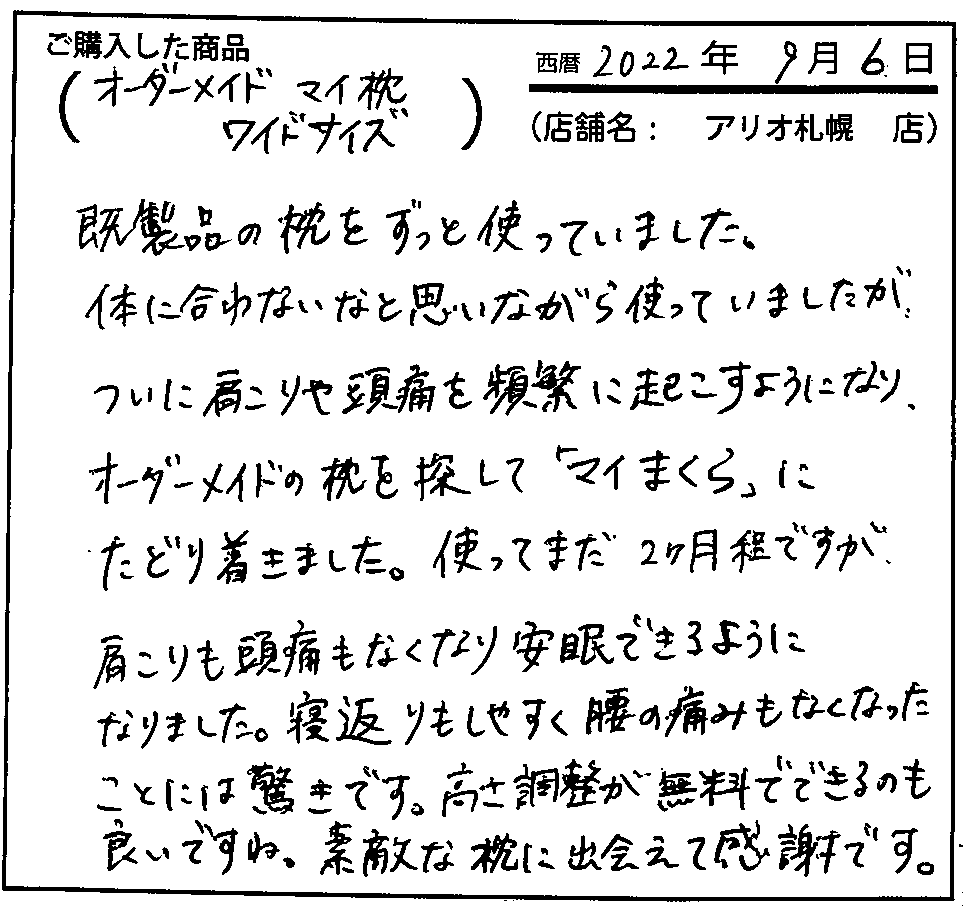 ご購入した商品
(オーダーメイド マイ枕
ワイドサイズ)
西暦 2022年 9月 6日
(店舗名: アリオ札幌 店)
既製品の枕をずっと使っていました。
体に合わないなと思いながら使っていましたが、
ついに肩こりや頭痛を頻繁に起こすようになり、
オーダーメイドの枕を探して「マイまくら」に
たどり着きました。使ってまだ2ヶ月程ですが、
肩こりも頭痛もなくなり安眠できるように
なりました。寝返りもしやすく腰の痛みもなくなった
ことには驚きです。高さ調整が無料でできるのも
良いですね。素敵な枕に出会えて感謝です。